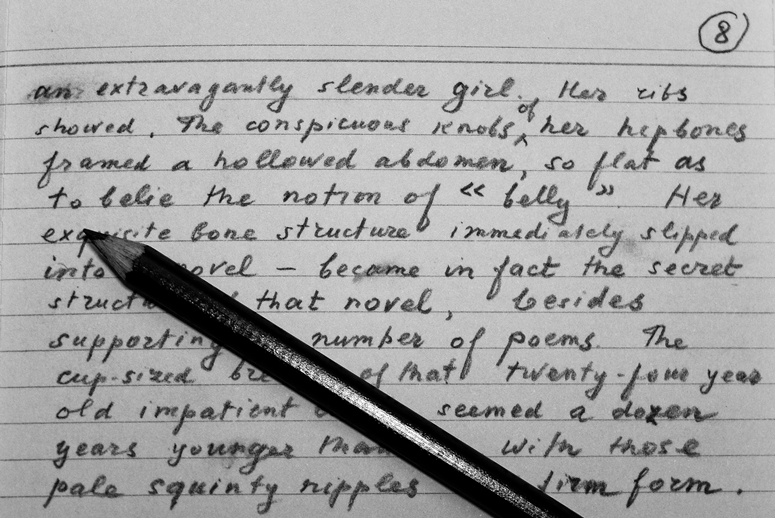 8
an extravagantly slender girl. Her ribs
showed. The conspicuous knobs of her hipbones
framed a hollowed abdomen, so flat as
to belie the notion of « belly ». Her
exquisite bone structure immediately slipped
into novel — became in fact the secret
that novel, besides
supporting number of poems. The
cup-sized of that twenty-four year
old impatient seemed a dozen
years younger with those
pale squinty nipples firm form.